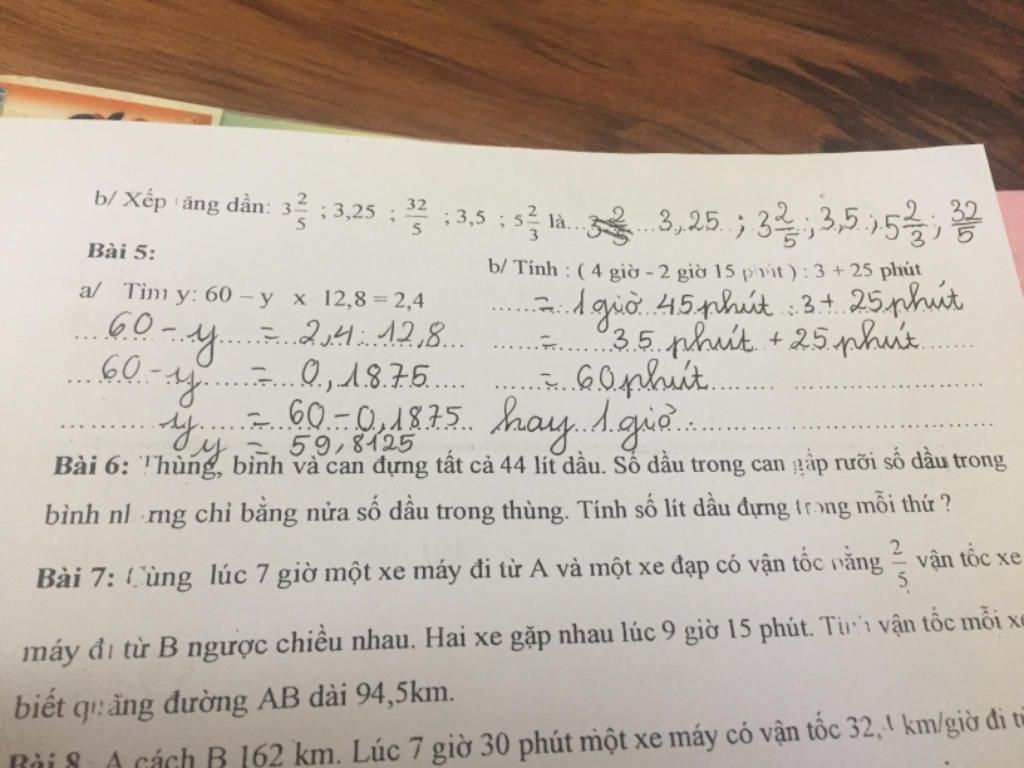 b/ Xếp tăng dần: 3 2/5 ; 3,25 ; 32/5 ; 3,5 ; 5 2/3 là... 3,25 ; 3 2/5 ; 3,5 ; 5 2/3 ; 32/5
Bài 5:
a/ Tìm y: 60 – y x 12,8 = 2,4
60 - y = 2,4 : 12,8
60 - y = 0,1875
y = 60 - 0,1875
y = 59,8125
b/ Tính : ( 4 giờ - 2 giờ 15 phút ) : 3 + 25 phút
= 1 giờ 45 phút : 3 + 25 phút
= 35 phút + 25 phút
= 60 phút
hay 1 giờ
Bài 6: Thùng, bình và can đựng tất cả 44 lít dầu. Số dầu trong can gấp rưỡi số dầu trong
bình nhưng chỉ bằng nửa số dầu trong thùng. Tính số lít dầu đựng trong mỗi thứ ?
Bài 7: Cùng lúc 7 giờ một xe máy đi từ A và một xe đạp có vận tốc bằng 2/5 vận tốc xe
máy đi từ B ngược chiều nhau. Hai xe gặp nhau lúc 9 giờ 15 phút. Tính vận tốc mỗi xe
biết quãng đường AB dài 94,5km.
Bài 8 A cách B 162 km. Lúc 7 giờ 30 phút một xe máy có vận tốc km/giờ đi từ